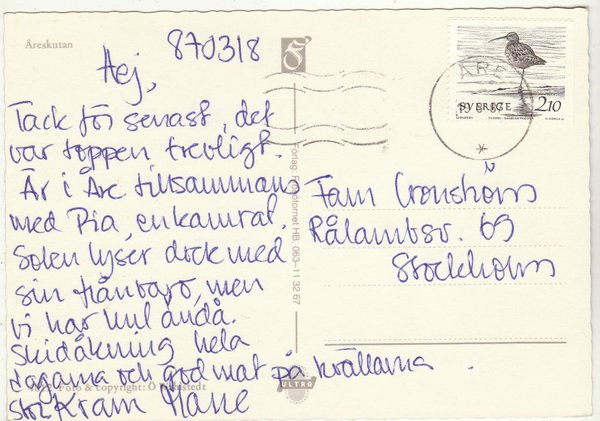 Åreskutan
870318
Hej,
Tack för senast, det
var toppen trevligt.
Är i Åre tillsammans
med Pia, en kamrat.
Solen lyser dock med
sin frånvaro, men
vi har kul ändå.
Skidåkning hela
dagarna och god mat på kvällarna.
Stor Kram Hanne
Fam Cronholm
Rålambsv. 69
Stockholm
ÅRE
SVERIGE 210
Förlag: Fotohornet HB. 063-11 32 67
Foto & copyright: Ö
ULTRA